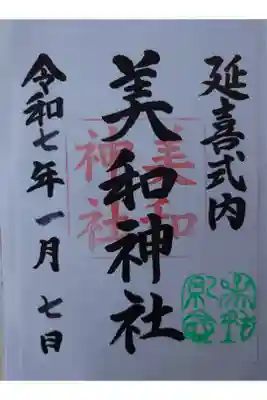 延喜式内
美和神社
美和
神社
令和七年一月七日